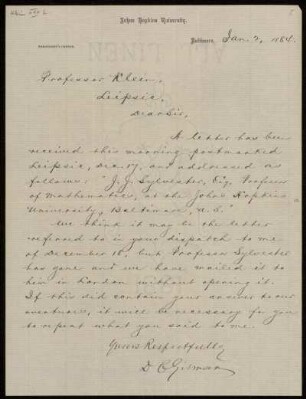 Johns Hopkins University.
Baltimore, Jan. 3, 1884
Professor Klein,
Leipsic,
Dear Sir,
A letter has been
received this morning postmarked
Leipsic, and addressed as
follows: "J. J. Sylvester, Esq, Professor
of Mathematics, at the Johns Hopkins
University, Baltimore, U. S."
We think it may be the letter
referred to in your dispatch to me
of December 18, but Professor Sylvester
has gone and we have mailed it to
him in London without opening it.
If this did contain your answer to our
it will be necessary for you
to repeat what you said to me.
Yours Respectfully,
D. C. Gilman